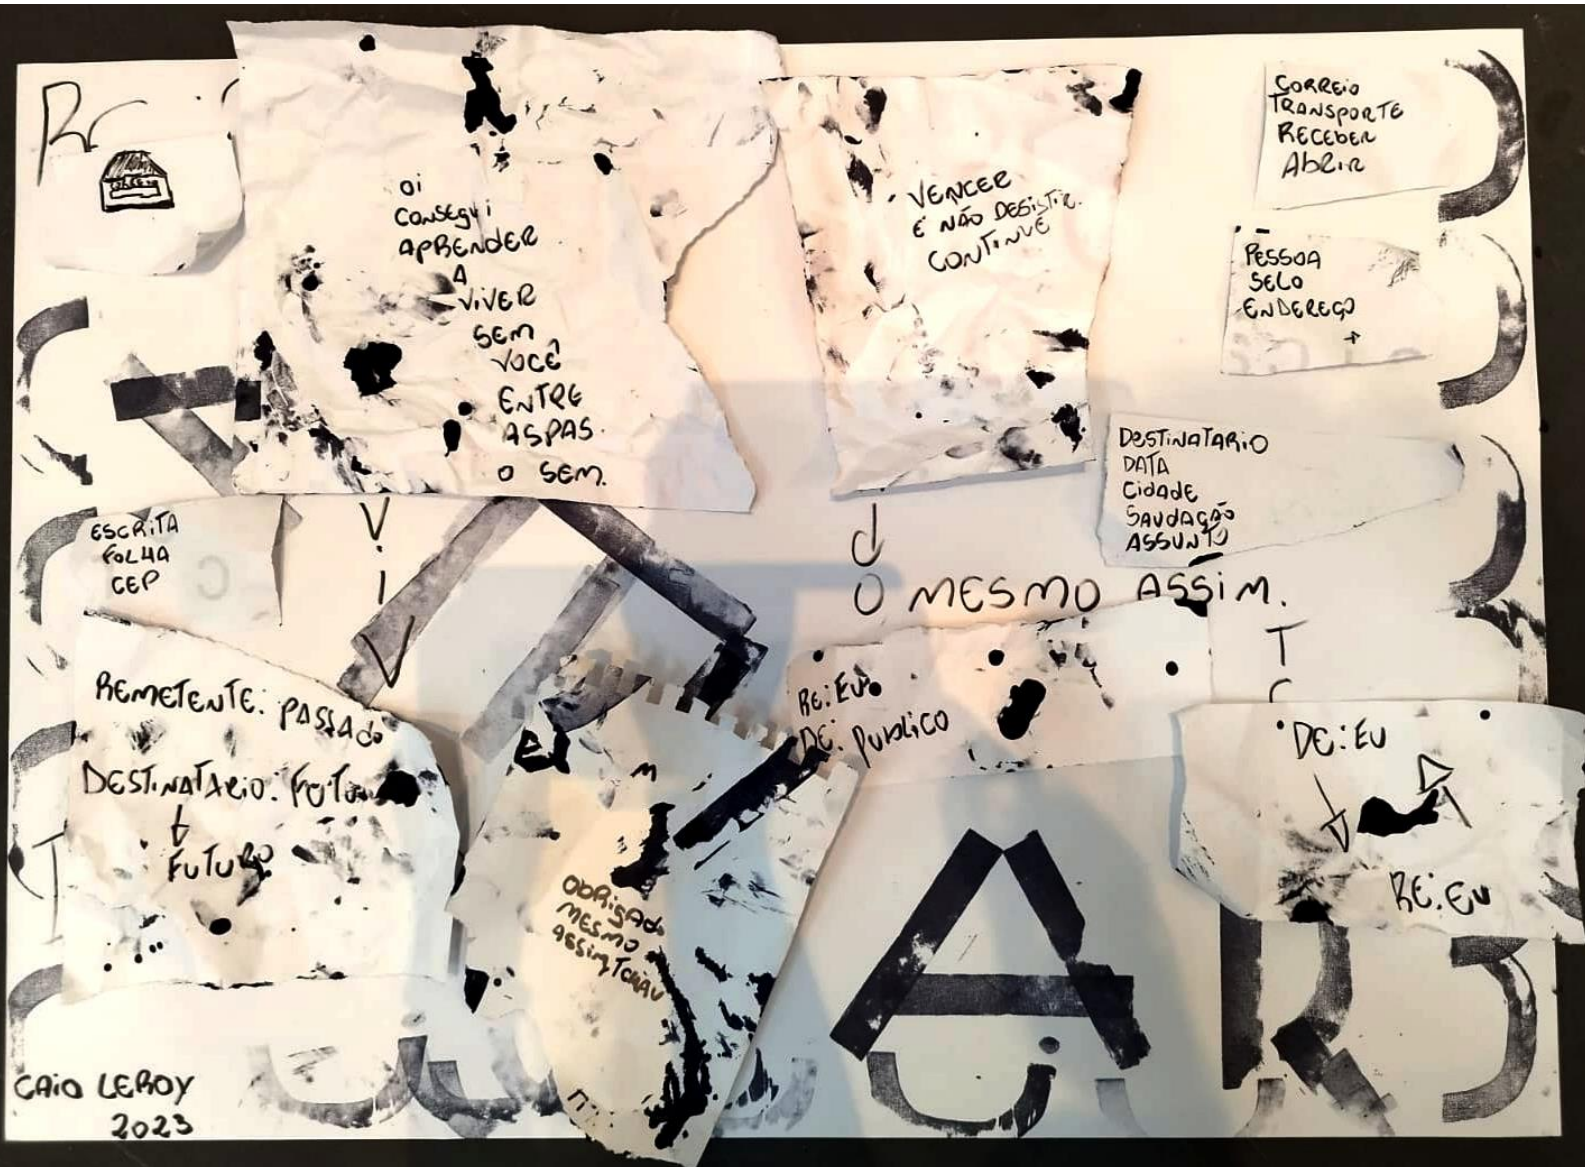 OI
CONSEGUI
APRENDER
A
VIVER
SEM
VOCÊ
ENTRE
ASPAS.
O SEM.
VENCER
É NÃO DESISTIR.
CONTINUE
CORREIO
TRANSPORTE
RECEBER
ABRIR
PESSOA
SELO
ENDEREÇO
DESTINATARIO
DATA
CIDADE
SAUDAÇÃO
ASSUNTO
ESCRITA
FOLHA
CEP
V
i
V
d
O MESMO ASSIM.
T
REMETENTE: PASSADO
DESTINATARIO: FUTU
FUTURO
RE: EU
DE: PUBLICO
DE: EU
RE: EU
M
OBRIGADO
MESMO
ASSIM, TCHAU
A
CAIO LEROY
2023